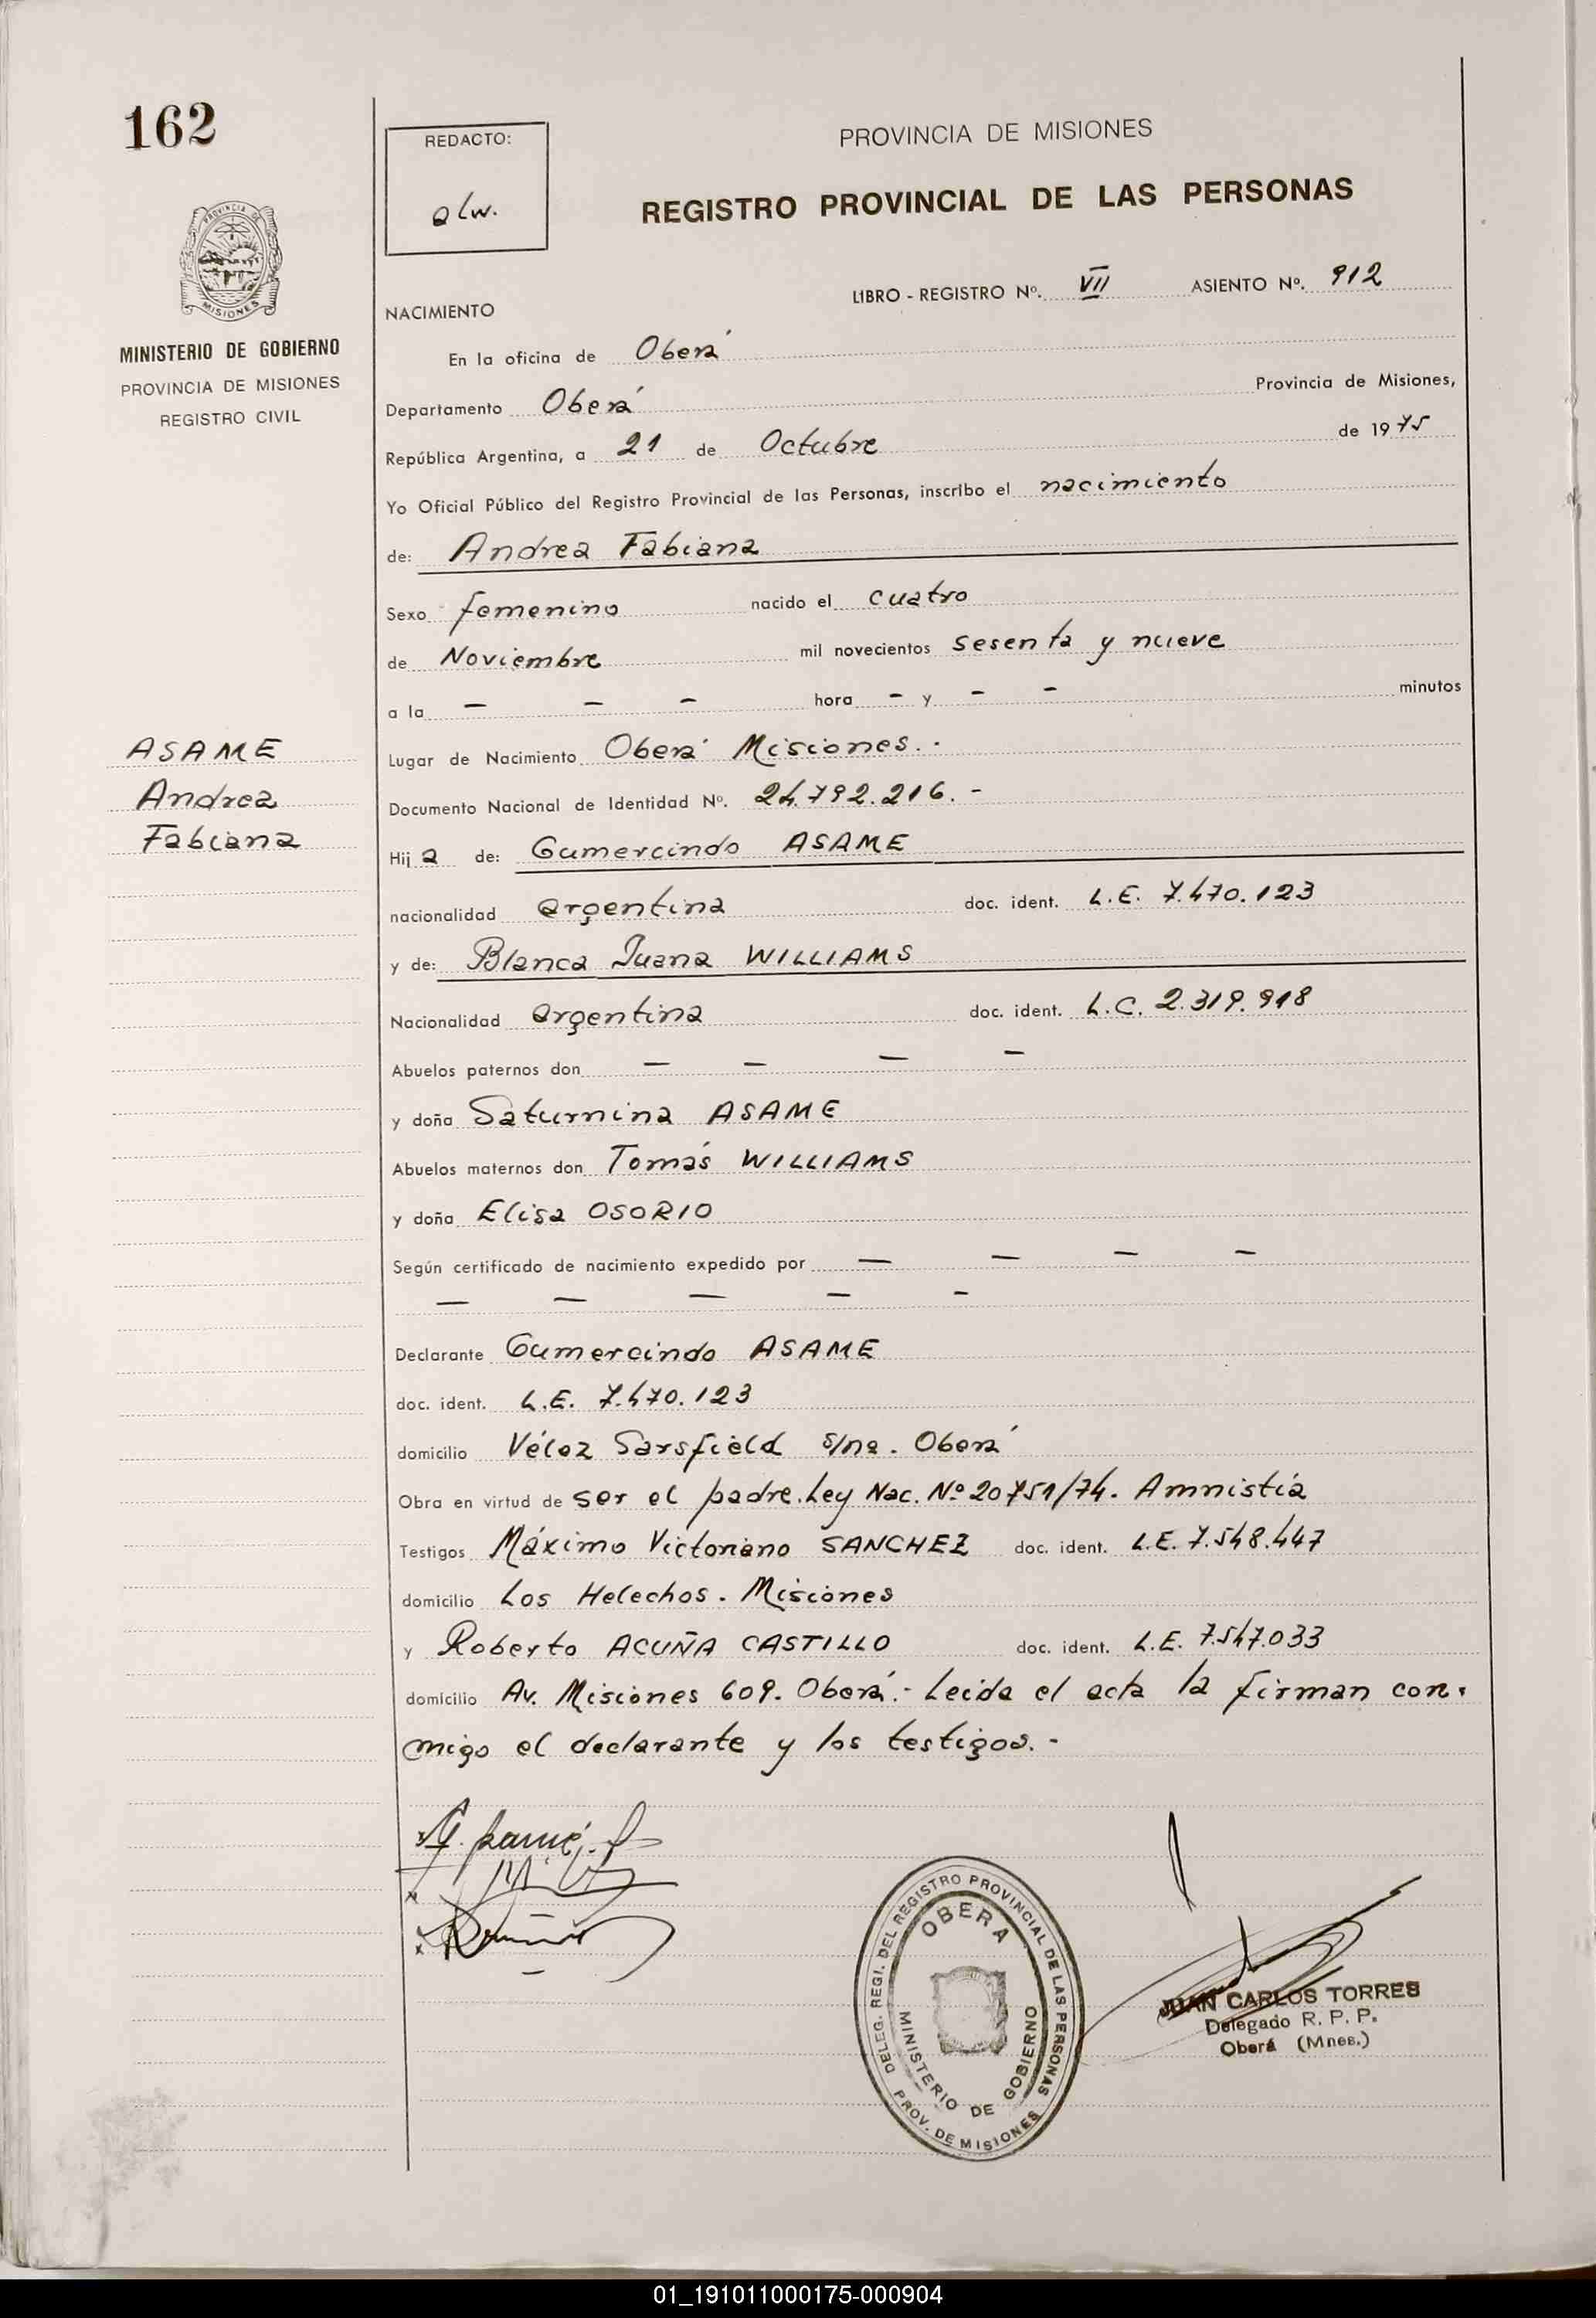 162
REDACTO:
alw.
PROVINCIA DE MISIONES
REGISTRO PROVINCIAL DE LAS PERSONAS
PROVINCIA DE
MISIONES
MINISTERIO DE GOBIERNO
PROVINCIA DE MISIONES
REGISTRO CIVIL
LIBRO - REGISTRO Nº. VII ASIENTO Nº. 912
NACIMIENTO
En la oficina de Oberá
Departamento Oberá Provincia de Misiones,
República Argentina, a 21 de Octubre de 1975
Yo Oficial Público del Registro Provincial de las Personas, inscribo el nacimiento
de: Andrea Fabiana
Sexo femenino nacido el cuatro
de Noviembre mil novecientos sesenta y nueve
a la — — — hora - y - - minutos
ASAME
Andrea
Fabiana
Lugar de Nacimiento Oberá Misiones.-
Documento Nacional de Identidad Nº. 24.792.216.-
Hija de: Gumercindo ASAME
nacionalidad argentina doc. ident. L.E. 7.470.123
y de: Blanca Juana WILLIAMS
Nacionalidad argentina doc. ident. L.C. 2.319.918
Abuelos paternos don — — — —
y doña Saturnina ASAME
Abuelos maternos don Tomás WILLIAMS
y doña Elisa OSORIO
Según certificado de nacimiento expedido por — — — —
— — — — -
Declarante Gumercindo ASAME
doc. ident. L.E. 7.470.123
domicilio Vélez Sarsfield s/nº. Oberá
Obra en virtud de ser el padre. Ley Nac. Nº 20751/74. Amnistía
Testigos Máximo Victoriano SANCHEZ doc. ident. L.E. 7.548.447
domicilio Los Helechos. Misiones
y Roberto ACUÑA CASTILLO doc. ident. L.E. 7.547.033
domicilio Av. Misiones 609. Oberá.- Leida el acta la firman con-
migo el declarante y los testigos.-
DELEG. REGI. DEL REGISTRO PROVINCIAL DE LAS PERSONAS
OBERA
MINISTERIO DE GOBIERNO
PROV. DE MISIONES
JUAN CARLOS TORRES
Delegado R. P. P.
Oberá (Mnes.)
01_191011000175-000904